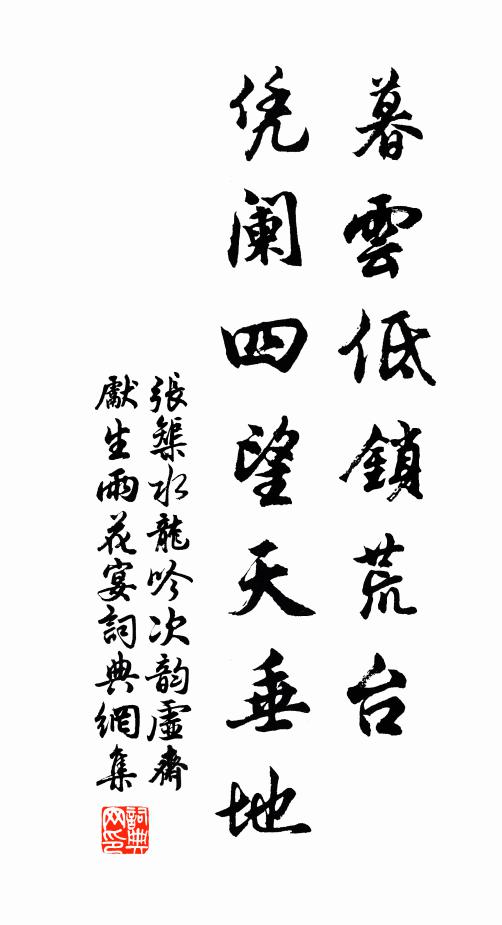 暮雲低鎖荒台
凭阑四望天垂地
張榘水龍吟次韵虛齋
獻生雨花宴詞典網集
詞典網印